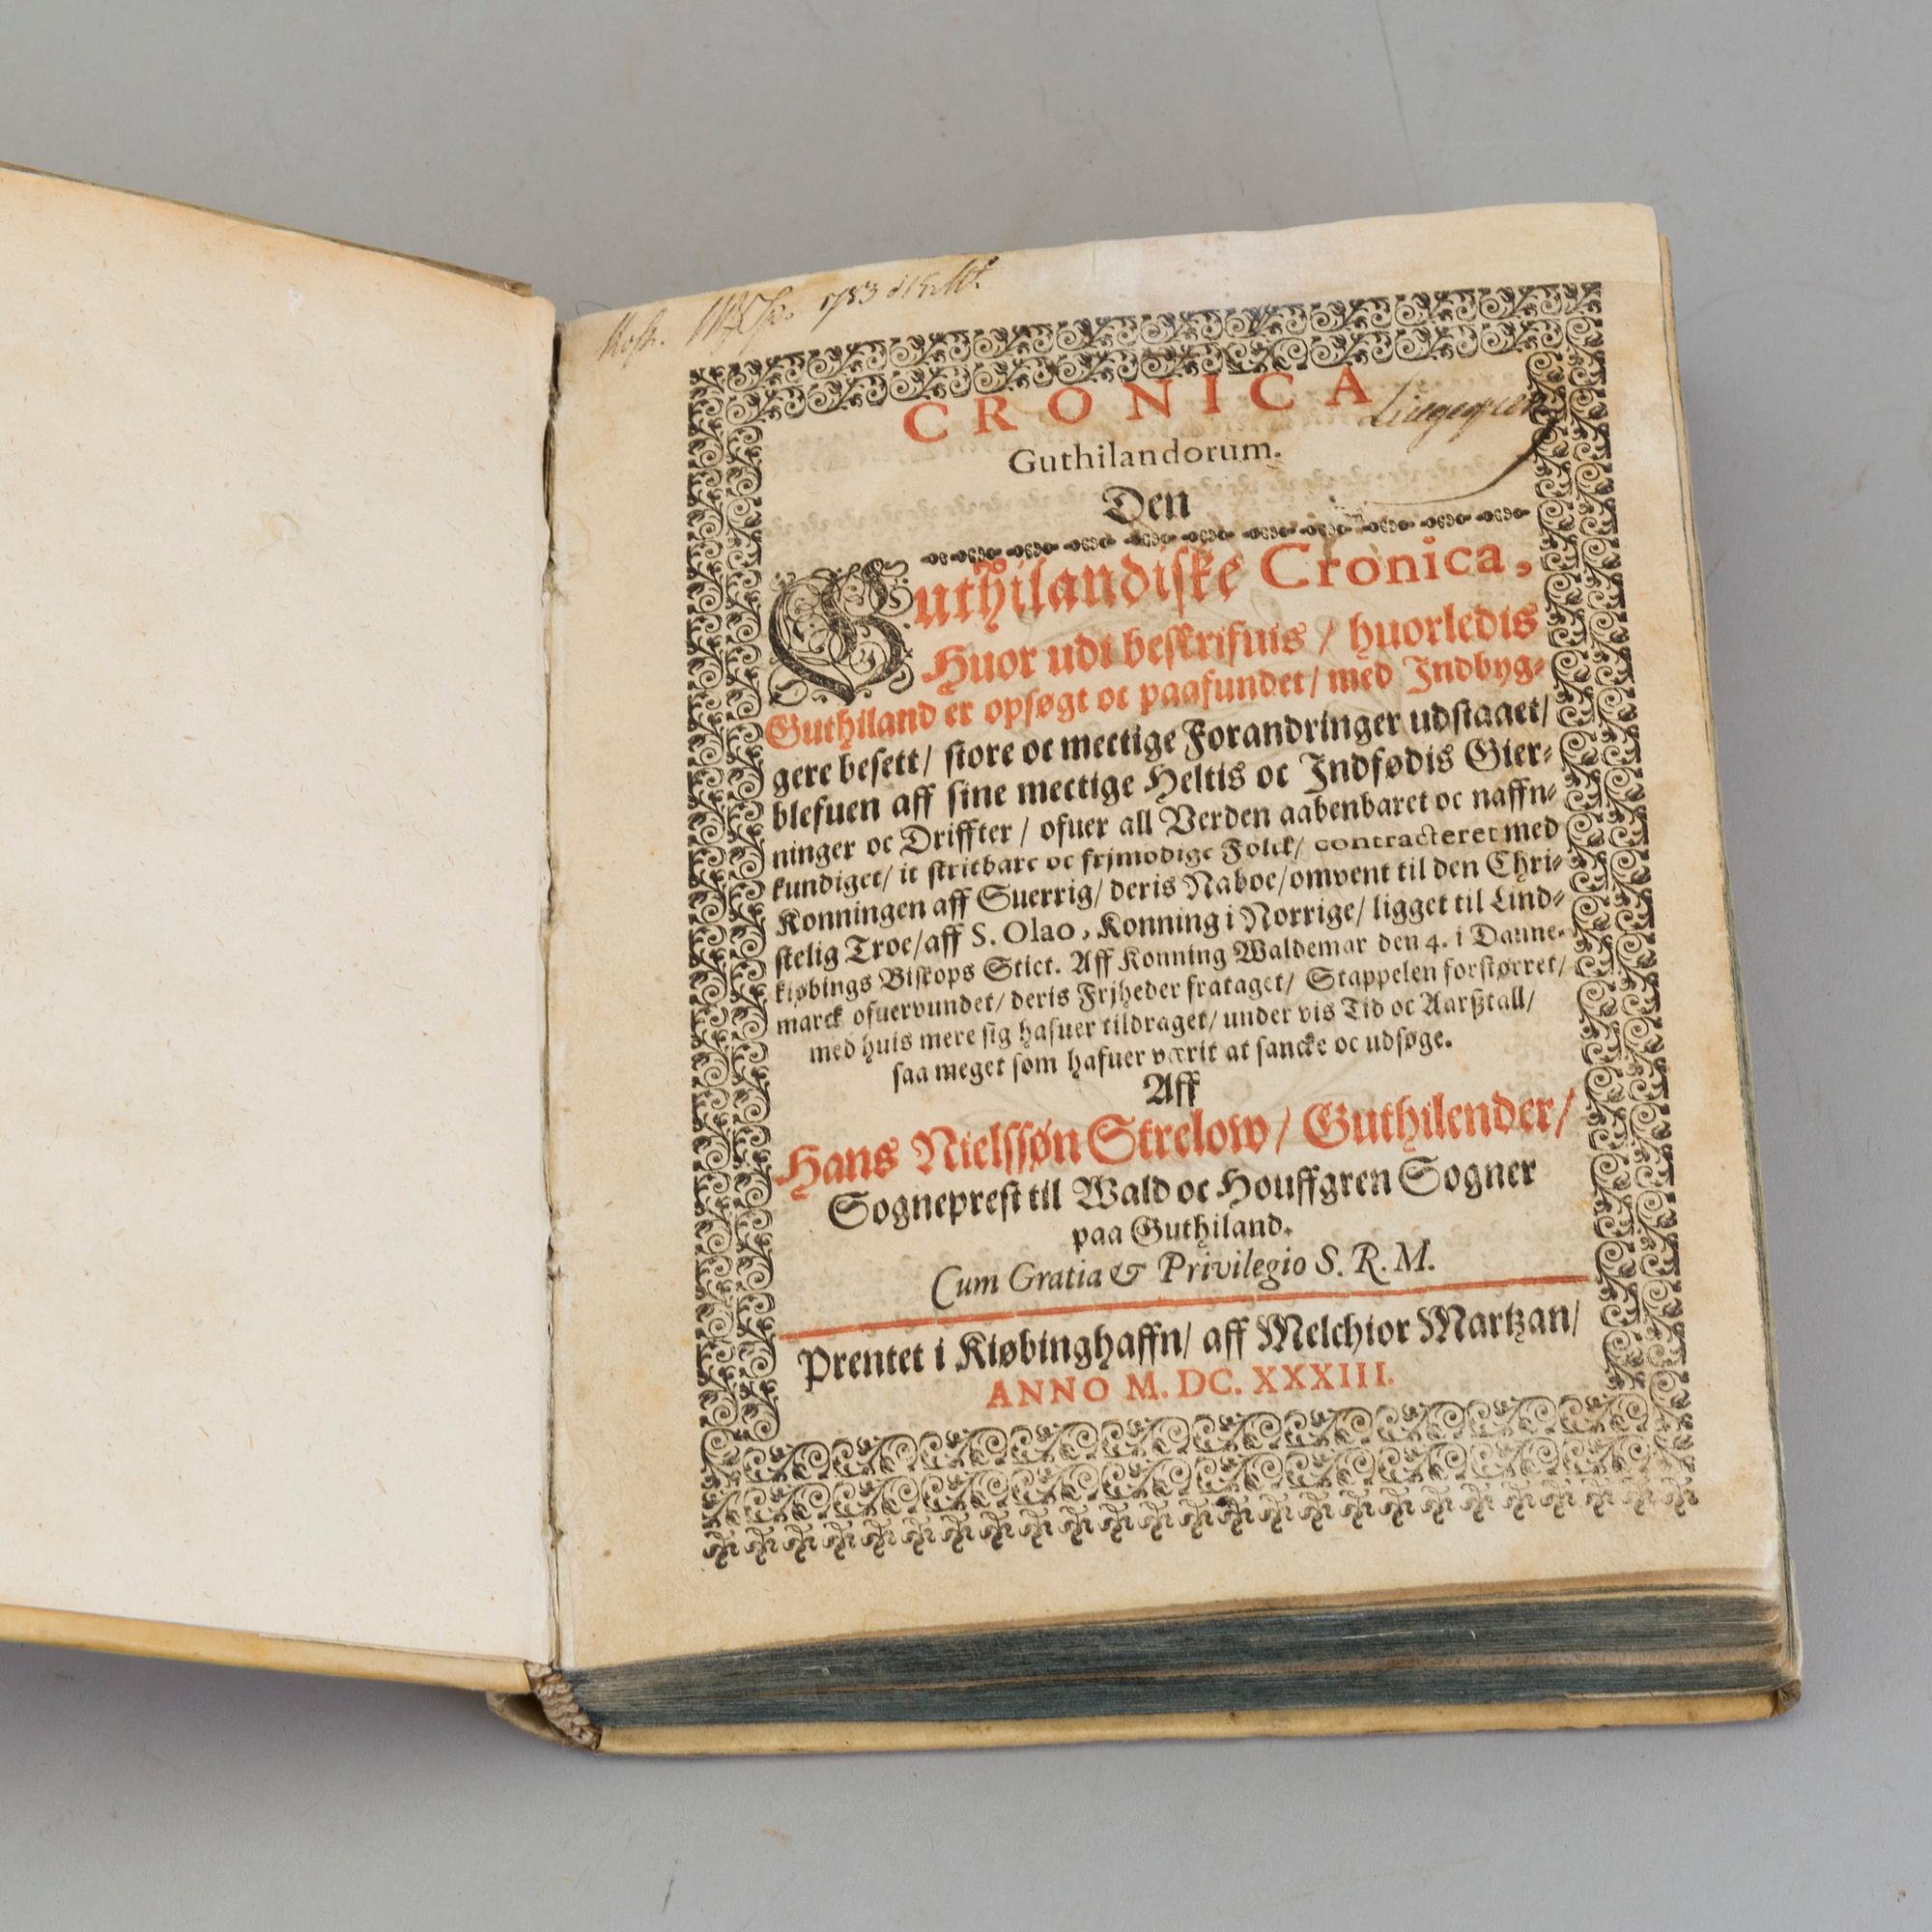 1783
CRONICA
Guthilandorum.
Den
Guthilandiske Cronica,
Huor udi beskrifuis / huorledis
Guthiland er opsøgt oc paafundet / med Indbyg-
gere besett / store oc mectige Forandringer udstaaet /
blefuen aff sine mectige Heltis oc Indfødis Gier-
ninger oc Driffter / ofuer all Verden aabenbaret oc naffn-
kundiget / it stritbare oc frjmodige Folck / contracteret med
Konningen aff Suerrig / deris Naboe / omvent til den Chri-
stelig Troe / aff S. Olao, Konning i Norrige / ligget til Lind-
kiøbings Biskops Stict. Aff Konning Waldemar den 4. i Danne-
marck ofuervundet / deris Frjheder frataget / Stappelen forstørret /
med huis mere sig hafuer tildraget / under vis Tid oc Aarßtall /
saa meget som hafuer værit at sancke oc udsøge.
Aff
Hans Nielssøn Strelow / Guthilender /
Sogneprest til Wald oc Houffgren Sogner
paa Guthiland.
Cum Gratia & Privilegio S. R. M.
Prentet i Kiøbinghaffn / aff Melchior Martzan /
ANNO M. DC. XXXIII.